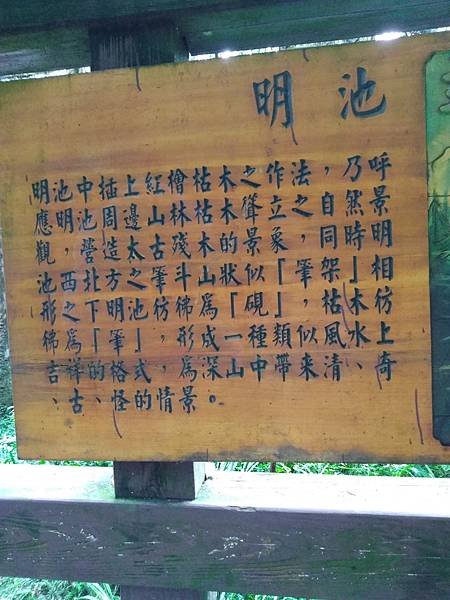 明池
明池中插上紅檜枯木之作法，乃呼
應明池周邊山林枯木聳立之自然景
觀，營造太古殘木的景象，同時明
池西北方之筆斗山狀似「筆架」相
形之下明池彷彿為「硯」，枯木彷
彿為「筆」，形成一種類似風水上
吉祥的格式，為深山中帶来清、奇
、古、怪的情景。